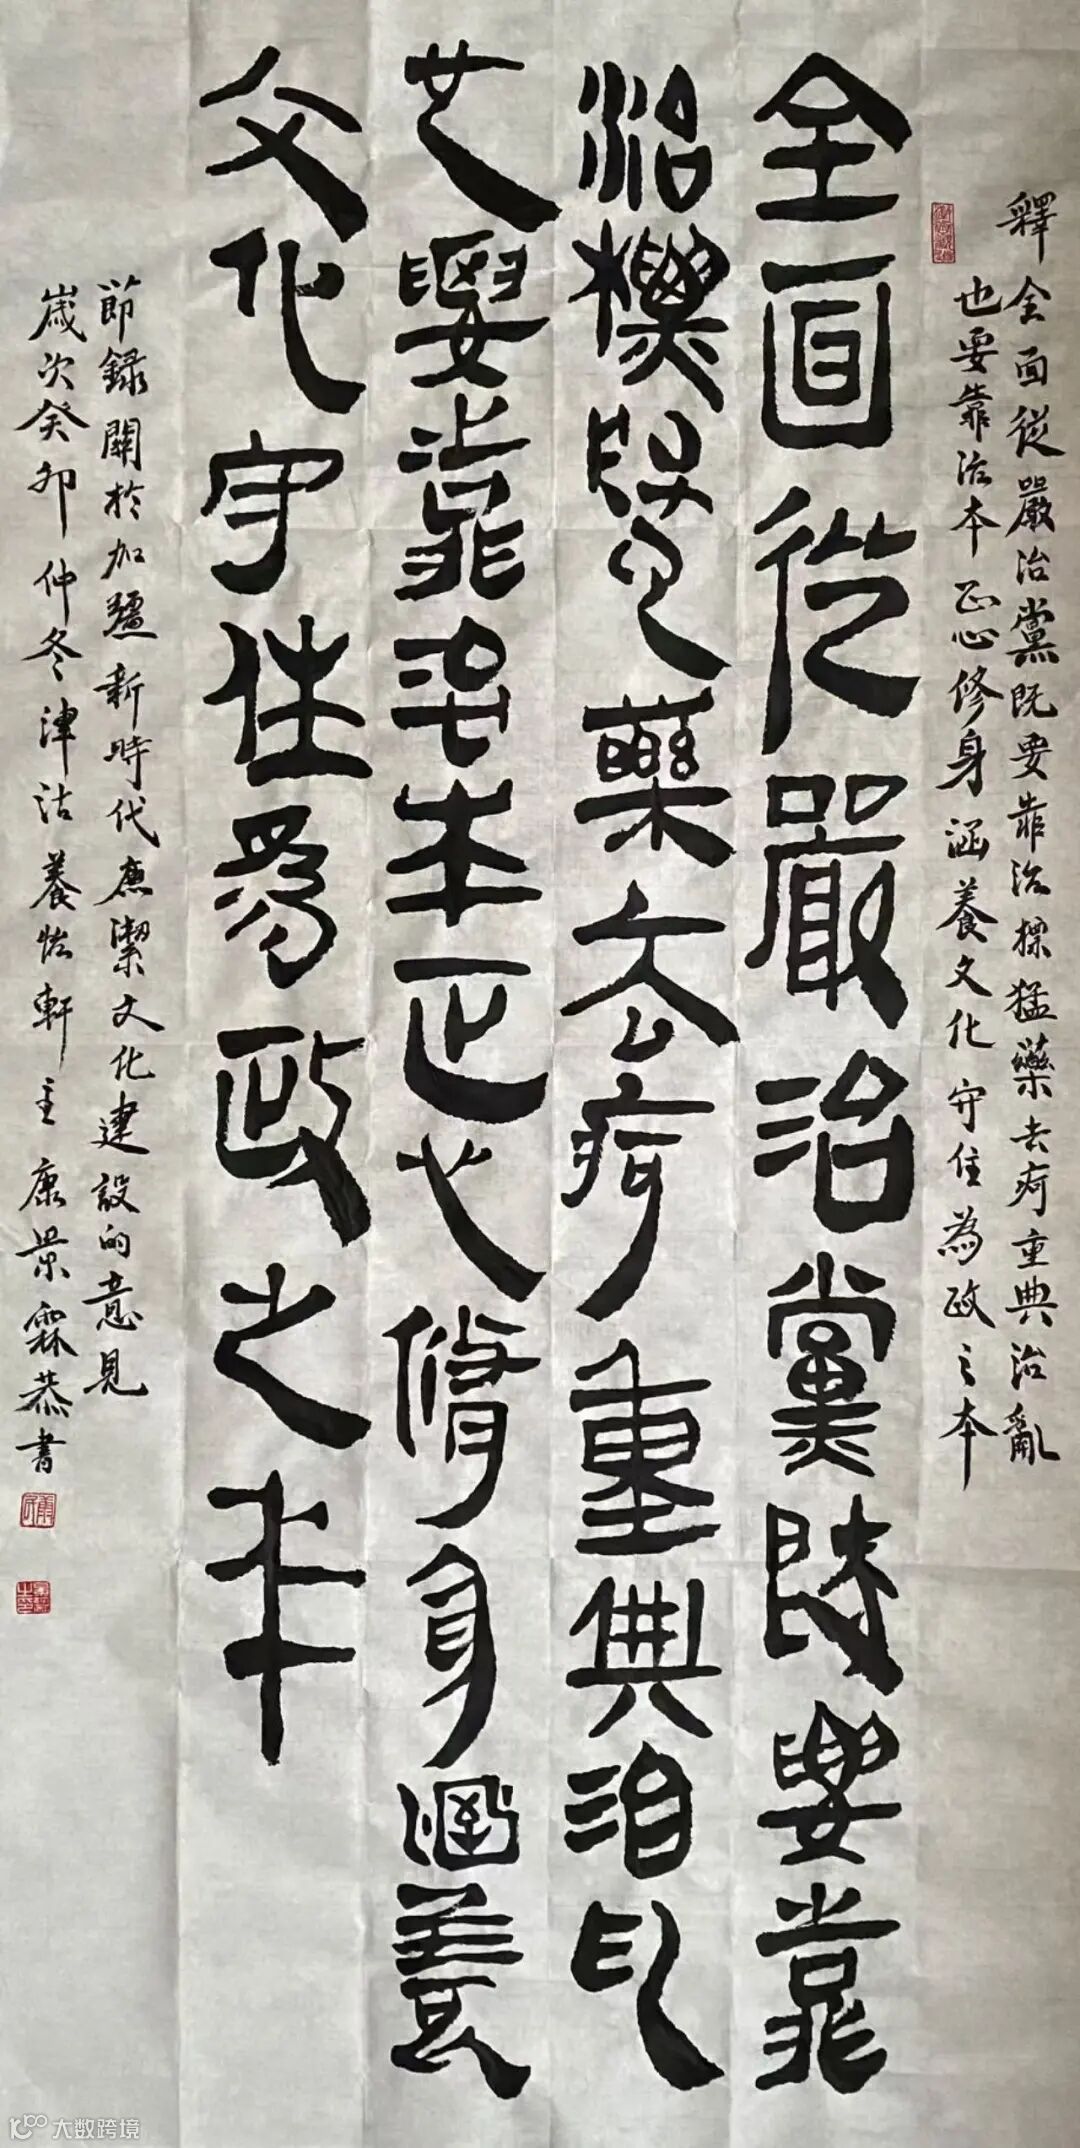 釋全面從嚴治黨既要靠治標猛藥去疴重典治亂
也要靠治本正心修身涵養文化守住為政之本
全面從嚴治黨既要靠
治標猛藥去疴重典治亂
也要靠治本正心修身涵養
文化守住為政之本
節録關於加彊新時代廉潔文化建設的意見
歲次癸卯仲冬津沽養怡軒主康景霖恭書
大数跨境